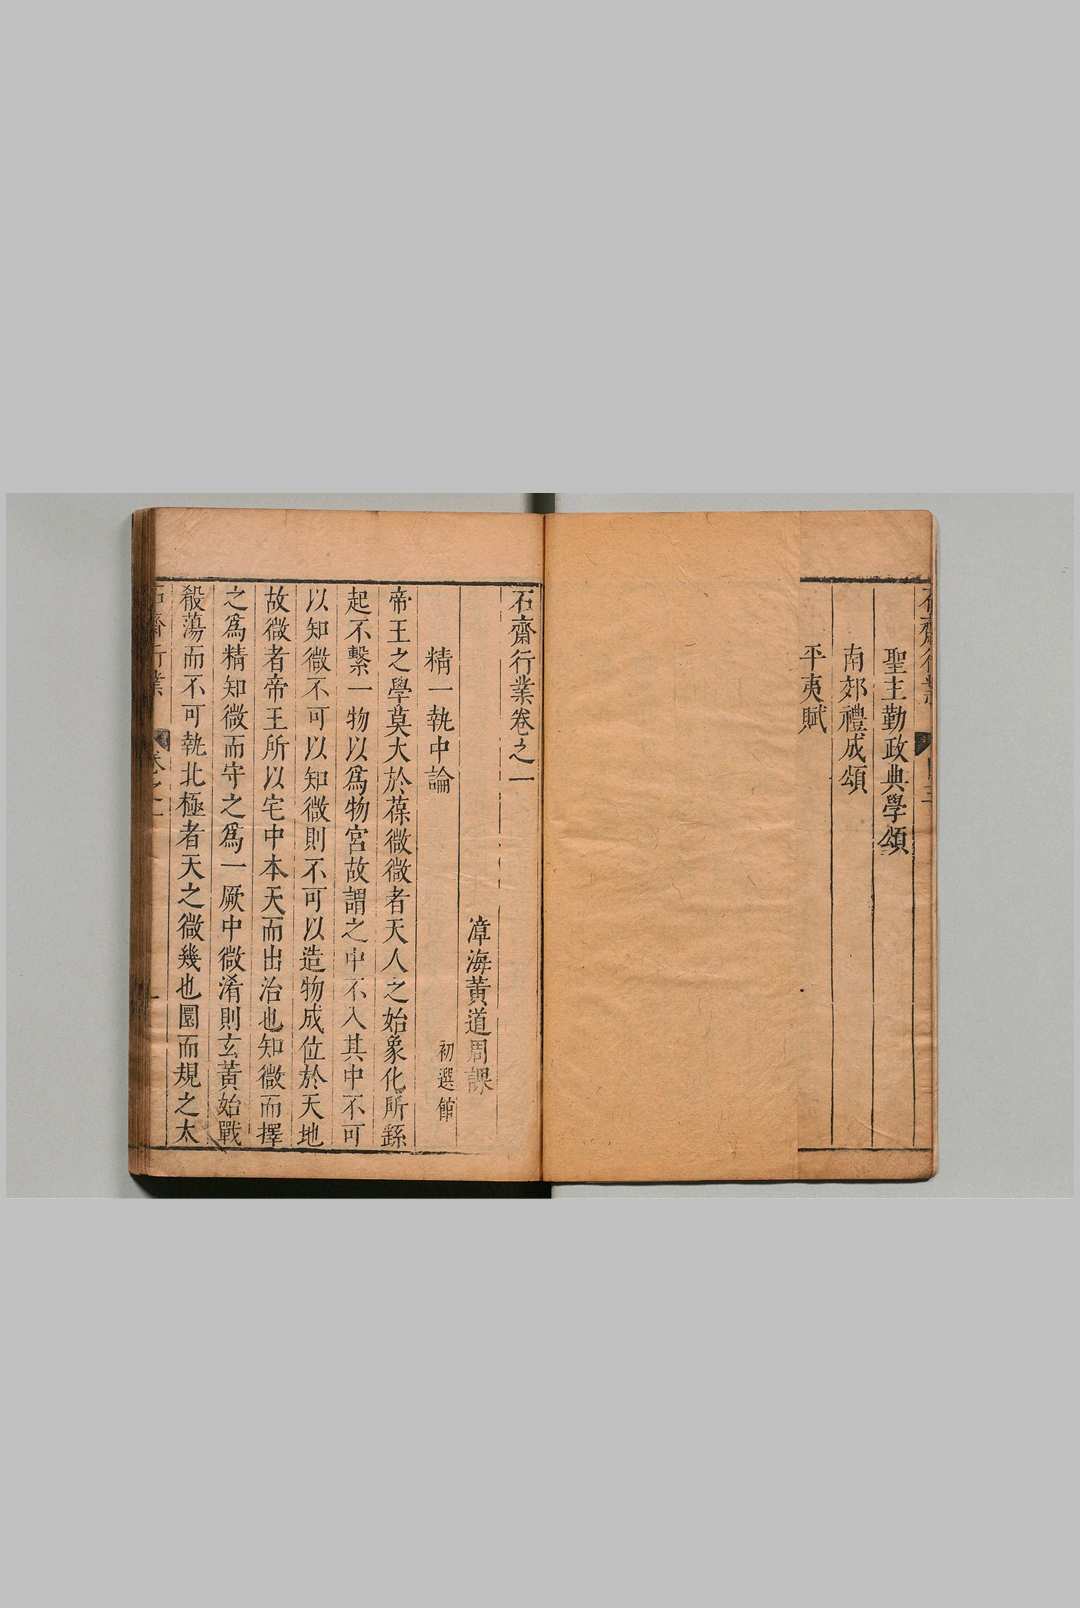 聖主勤政典學頌
南郊禮成頌
平夷賦
石齋行業卷之一
漳海黃道周課
精一執中論
初選館
帝王之學莫大於葆微微者天人之始象化所繇
起不繫一物以爲物宮故謂之中不入其中不可
以知微不可以知微則不可以造物成位於天地
故微者帝王所以宅中本天而出治也知微而擇
之爲精知微而守之爲一厥中微淆則玄黃始戰
殽蕩而不可執北極者天之微幾也圜而規之太
石齋行業
卷之一
一